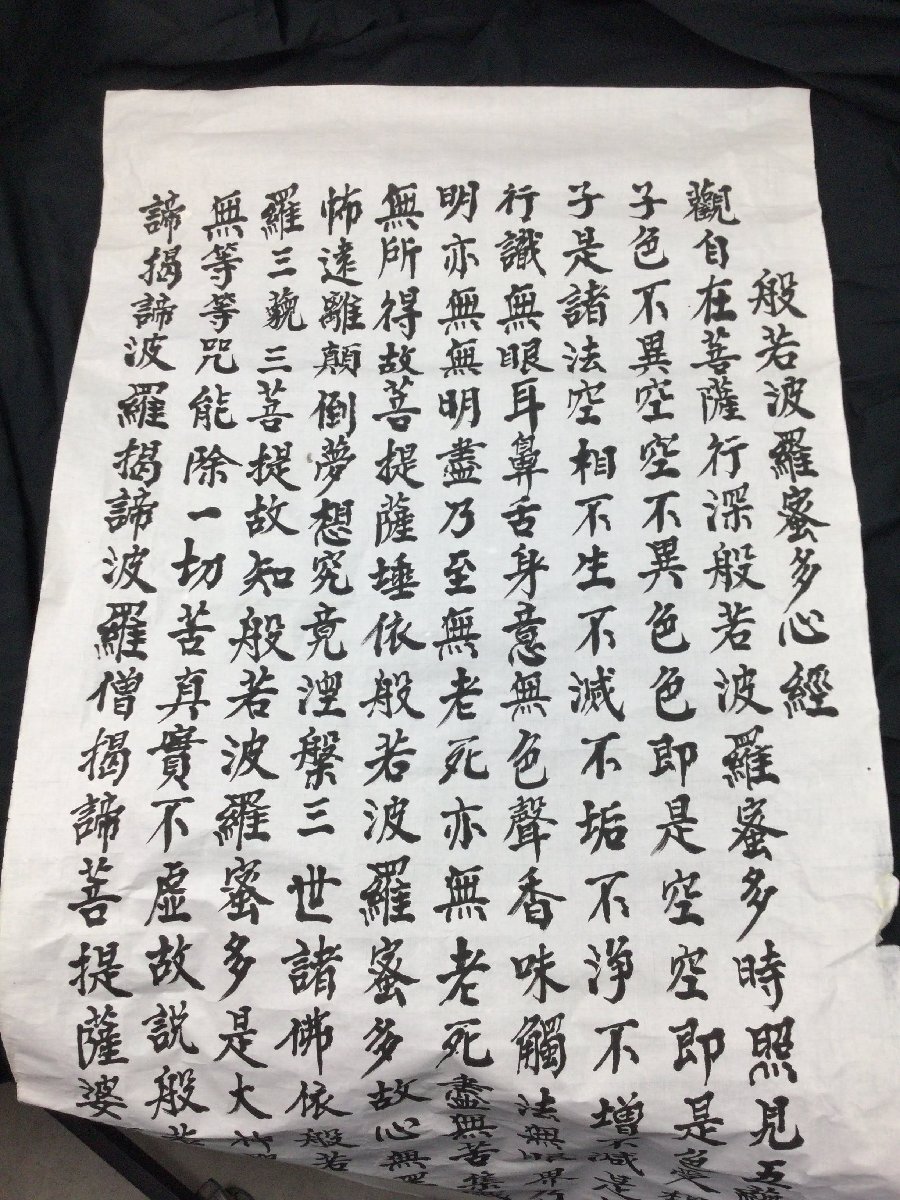 般若波羅蜜多心經
觀自在菩薩行深般若波羅蜜多時照見五
子色不異空空不異色色即是空空即是色受
子是諸法空相不生不滅不垢不淨不增不減是
行識無眼耳鼻舌身意無色聲香味觸法無眼界乃
明亦無無明盡乃至無老死亦無老死盡無苦集
無所得故菩提薩埵依般若波羅蜜多故心無罣
怖遠離顛倒夢想究竟涅槃三世諸佛依般若
羅三藐三菩提故知般若波羅蜜多是大神
無等等咒能除一切苦真實不虛故說般若
諦揭諦波羅揭諦波羅僧揭諦菩提薩婆